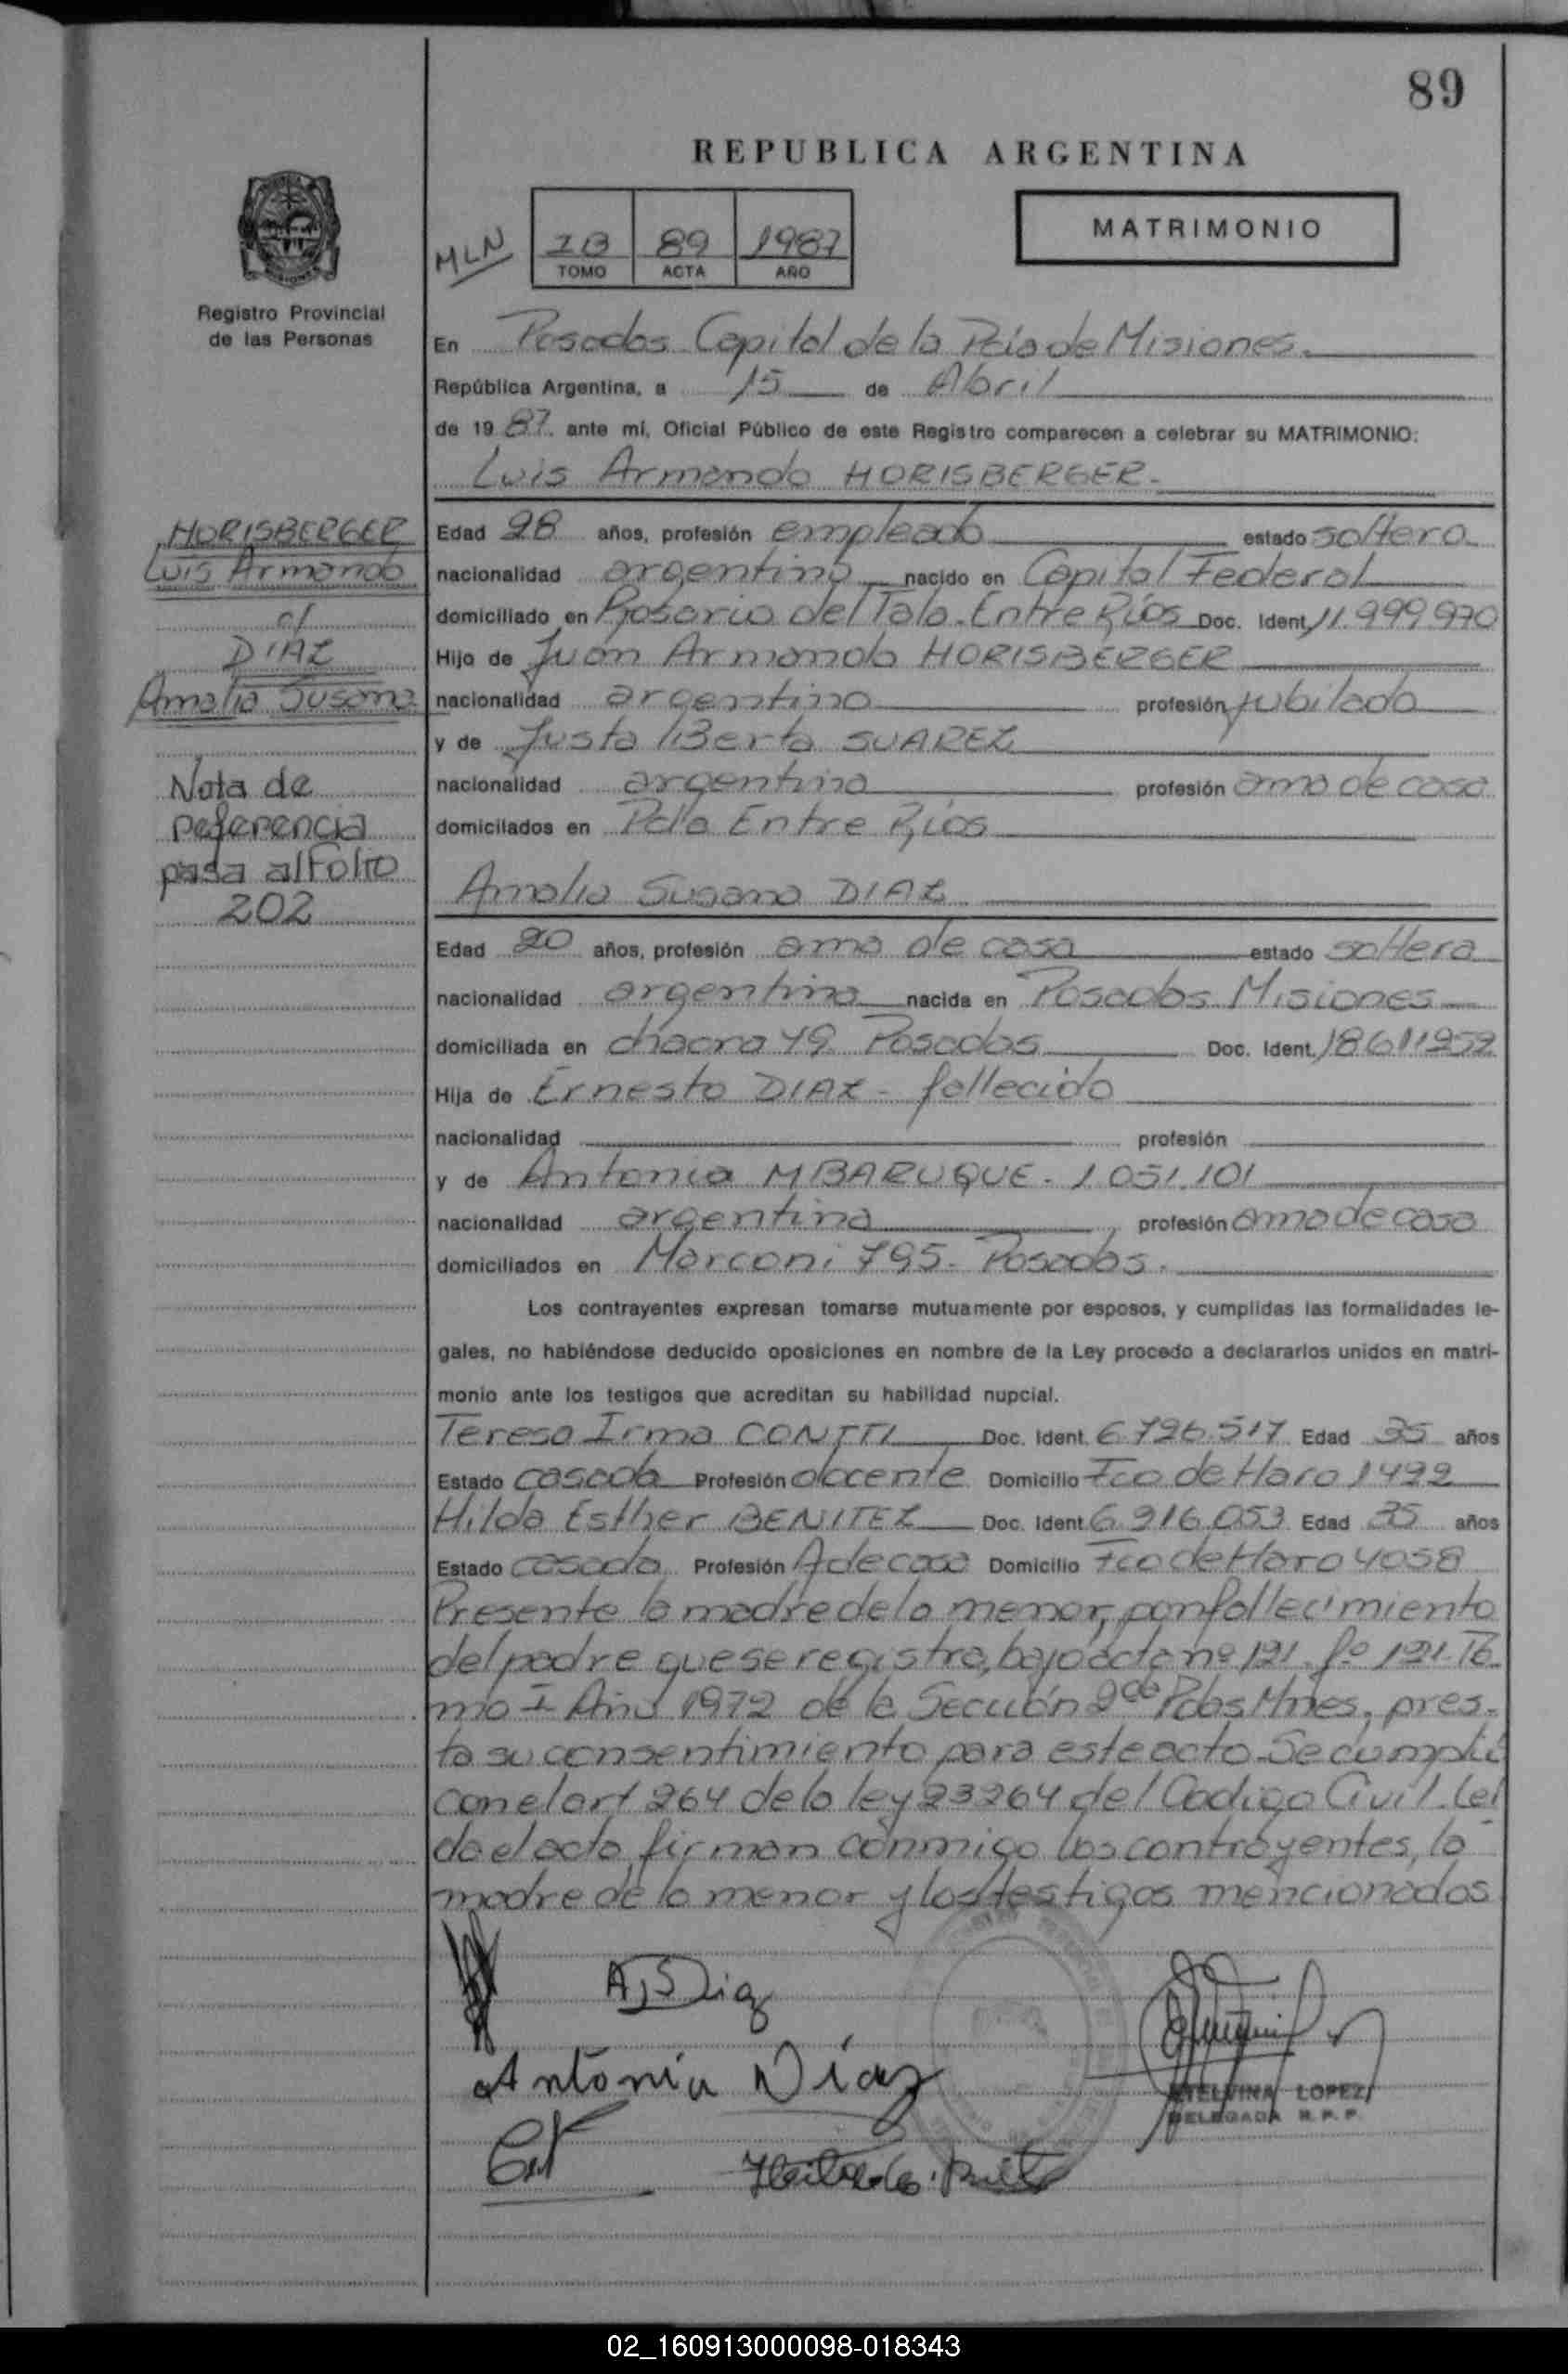 89
REPUBLICA ARGENTINA
MLN
1B 89 1987
TOMO ACTA AÑO
MATRIMONIO
Registro Provincial
de las Personas
En Posadas Capital de la Pcia de Misiones.
República Argentina, a 15 de Abril
de 19 87 ante mí, Oficial Público de este Registro comparecen a celebrar su MATRIMONIO:
Luis Armando HORISBERGER-
HORISBERGER
Luis Armando
c/
DIAZ
Amalia Susana
Nota de
referencia
pasa al Folio
202
Edad 28 años, profesión empleado estado soltero
nacionalidad argentino nacido en Capital Federal
domiciliado en Rosario del Tala-Entre Ríos Doc. Ident. 11.999.970
Hijo de Juan Armando HORISBERGER
nacionalidad argentino profesión jubilado
y de Justa Berta SUAREZ
nacionalidad argentina profesión ama de casa
domicilados en Entre Ríos
Amalia Susana DIAZ
Edad 20 años, profesión ama de casa estado soltera
nacionalidad argentina nacida en Posadas Misiones
domiciliada en chacra 49 Posadas Doc. Ident. 18611952
Hija de Ernesto DIAZ - fallecido
nacionalidad profesión
y de Antonia MBARUQUE - 1.051.101
nacionalidad argentina profesión ama de casa
domiciliados en Marconi 795- Posadas.
Los contrayentes expresan tomarse mutuamente por esposos, y cumplidas las formalidades le-
gales, no habiéndose deducido oposiciones en nombre de la Ley procedo a declararlos unidos en matri-
monio ante los testigos que acreditan su habilidad nupcial.
Teresa Irma CONTTI Doc. Ident. 6.726.517 Edad 35 años
Estado casada Profesión docente Domicilio Fco de Haro 1422
Hilda Esther BENITEZ Doc. Ident. 6.916.053 Edad 35 años
Estado casada Profesión A de casa Domicilio Fco de Haro 4058
Presente la madre de la menor, por fallecimiento
del padre que se registra, bajo acta nº 121 fº 121-To
mo I Año 1972 de la Sección 2da Pdas Mnes, pres-
ta su consentimiento para este acto-Se cumplió
con el art 264 de la ley 23264 del Codigo Civil-Leí
da el acta, firman conmigo los contrayentes, la
madre de la menor y los testigos mencionados
A, S Diaz
Antonia Diaz
ETELVINA LOPEZ
DELEGADA R. P. P.
02_160913000098-018343